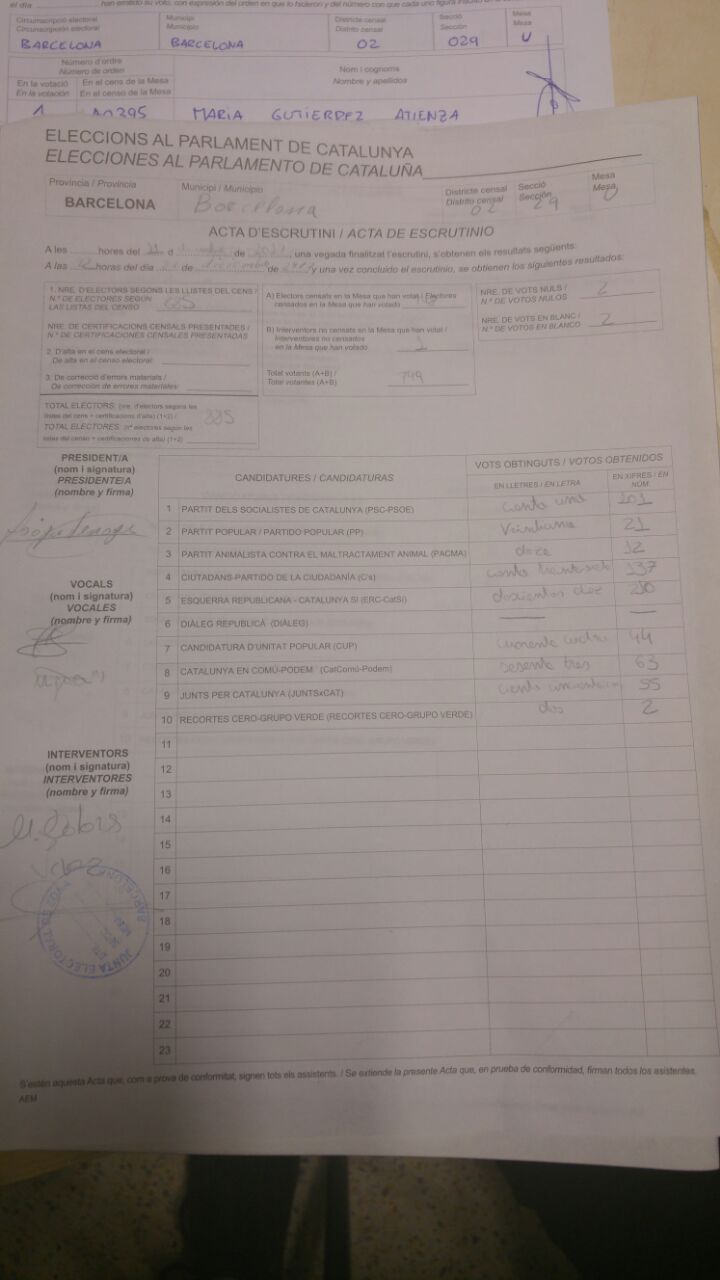 el día han emitido su voto, con expresión del orden en que lo hicieron y del número con que cada uno figura
Circumscripció electoral Municipi Districte censal Secció Mesa
Circunscripción electoral Municipio Distrito censal Sección Mesa
BARCELONA BARCELONA 02 029 U
Número d'ordre Nom i cognoms
Número de orden Nombre y apellidos
En la votació En el cens de la Mesa
En la votación En el censo de la Mesa
1 MARIA ATIENZA
ELECCIONS AL PARLAMENT DE CATALUNYA
ELECCIONES AL PARLAMENTO DE CATALUÑA
Província / Provincia Municipi / Municipio Districte censal Secció Mesa
Distrito censal Sección Mesa
BARCELONA Barcelona 02 29 U
ACTA D'ESCRUTINI / ACTA DE ESCRUTINIO
A les hores del 21 d de una vegada finalitzat l'escrutini, s'obtenen els resultats següents:
A las horas del día de de y una vez concluido el escrutinio, se obtienen los siguientes resultados:
1. NRE. D'ELECTORS SEGONS LES LLISTES DEL CENS /
N.º DE ELECTORES SEGÚN
LAS LISTAS DEL CENSO
NRE. DE CERTIFICACIONS CENSALS PRESENTADES /
N.º DE CERTIFICACIONES CENSALES PRESENTADAS
2. D'alta en el cens electoral /
De alta en el censo electoral:
3. De correcció d'errors materials /
De corrección de errores materiales:
TOTAL ELECTORS: (nre. d'electors segons les
llistes del cens + certificacions d'alta) (1+2) /
TOTAL ELECTORES: (nº electores según las
listas del censo + certificaciones de alta) (1+2)
A) Electors censats en la Mesa que han votat / Electores
censados en la Mesa que han votado
B) Interventors no censats en la Mesa que han votat /
Interventores no censados
en la Mesa que han votado 1
Total votants (A+B) /
Total votantes (A+B) 749
NRE. DE VOTS NULS / 2
N.º DE VOTOS NULOS
NRE. DE VOTS EN BLANC / 2
N.º DE VOTOS EN BLANCO
PRESIDENT/A
(nom i signatura)
PRESIDENTE/A
(nombre y firma)
VOCALS
(nom i signatura)
VOCALES
(nombre y firma)
INTERVENTORS
(nom i signatura)
INTERVENTORES
(nombre y firma)
CANDIDATURES / CANDIDATURAS VOTS OBTINGUTS / VOTOS OBTENIDOS
EN LLETRES / EN LETRA EN XIFRES / EN NÚM.
1 PARTIT DELS SOCIALISTES DE CATALUNYA (PSC-PSOE) 101
2 PARTIT POPULAR / PARTIDO POPULAR (PP) 21
3 PARTIT ANIMALISTA CONTRA EL MALTRACTAMENT ANIMAL (PACMA) doce 12
4 CIUTADANS-PARTIDO DE LA CIUDADANÍA (C's) 137
5 ESQUERRA REPUBLICANA - CATALUNYA SÍ (ERC-CatSí)
6 DIÀLEG REPUBLICÀ (DIÀLEG)
7 CANDIDATURA D'UNITAT POPULAR (CUP) 44
8 CATALUNYA EN COMÚ-PODEM (CatComú-Podem) sesenta tres 63
9 JUNTS PER CATALUNYA (JUNTSxCAT)
10 RECORTES CERO-GRUPO VERDE (RECORTES CERO-GRUPO VERDE) dos 2
11
12
13
14
15
16
17
18
19
20
21
22
23
JUNTA ELECTORAL
BARCELONA
S'estén aquesta Acta que, com a prova de conformitat, signen tots els assistents. / Se extiende la presente Acta que, en prueba de conformidad, firman todos los asistentes.
AEM